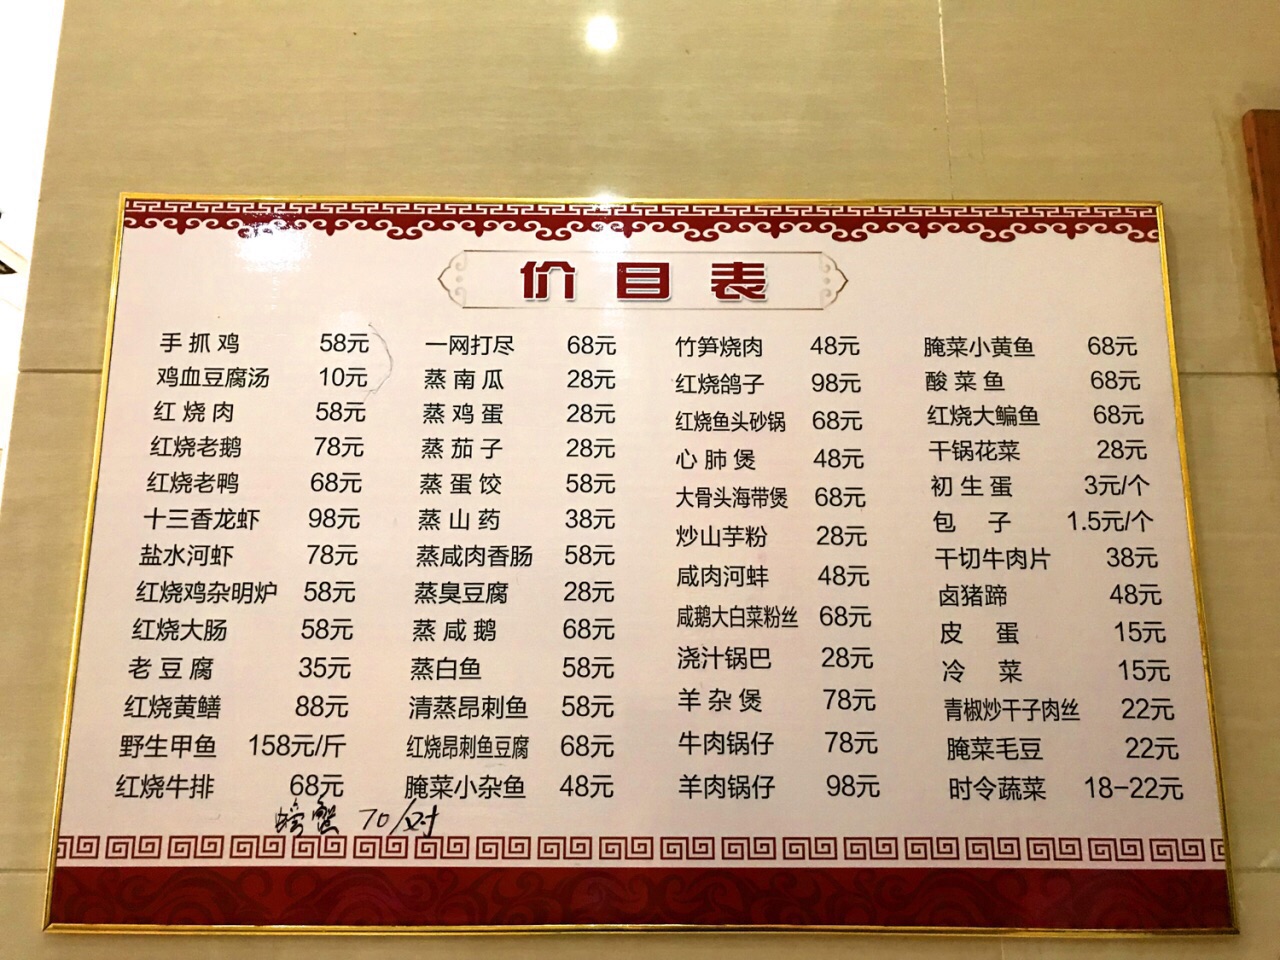 价目表
手抓鸡 58元
鸡血豆腐汤 10元
红烧肉 58元
红烧老鹅 78元
红烧老鸭 68元
十三香龙虾 98元
盐水河虾 78元
红烧鸡杂明炉 58元
红烧大肠 58元
老豆腐 35元
红烧黄鳝 88元
野生甲鱼 158元/斤
红烧牛排 68元
螃蟹 70/对
一网打尽 68元
蒸南瓜 28元
蒸鸡蛋 28元
蒸茄子 28元
蒸蛋饺 58元
蒸山药 38元
蒸咸肉香肠 58元
蒸臭豆腐 28元
蒸咸鹅 68元
蒸白鱼 58元
清蒸昂刺鱼 58元
红烧昂刺鱼豆腐 68元
腌菜小杂鱼 48元
竹笋烧肉 48元
红烧鸽子 98元
红烧鱼头砂锅 68元
心肺煲 48元
大骨头海带煲 68元
炒山芋粉 28元
咸肉河蚌 48元
咸鹅大白菜粉丝 68元
浇汁锅巴 28元
羊杂煲 78元
牛肉锅仔 78元
羊肉锅仔 98元
腌菜小黄鱼 68元
酸菜鱼 68元
红烧大鳊鱼 68元
干锅花菜 28元
初生蛋 3元/个
包子 1.5元/个
干切牛肉片 38元
卤猪蹄 48元
皮蛋 15元
冷菜 15元
青椒炒干子肉丝 22元
腌菜毛豆 22元
时令蔬菜 18-22元